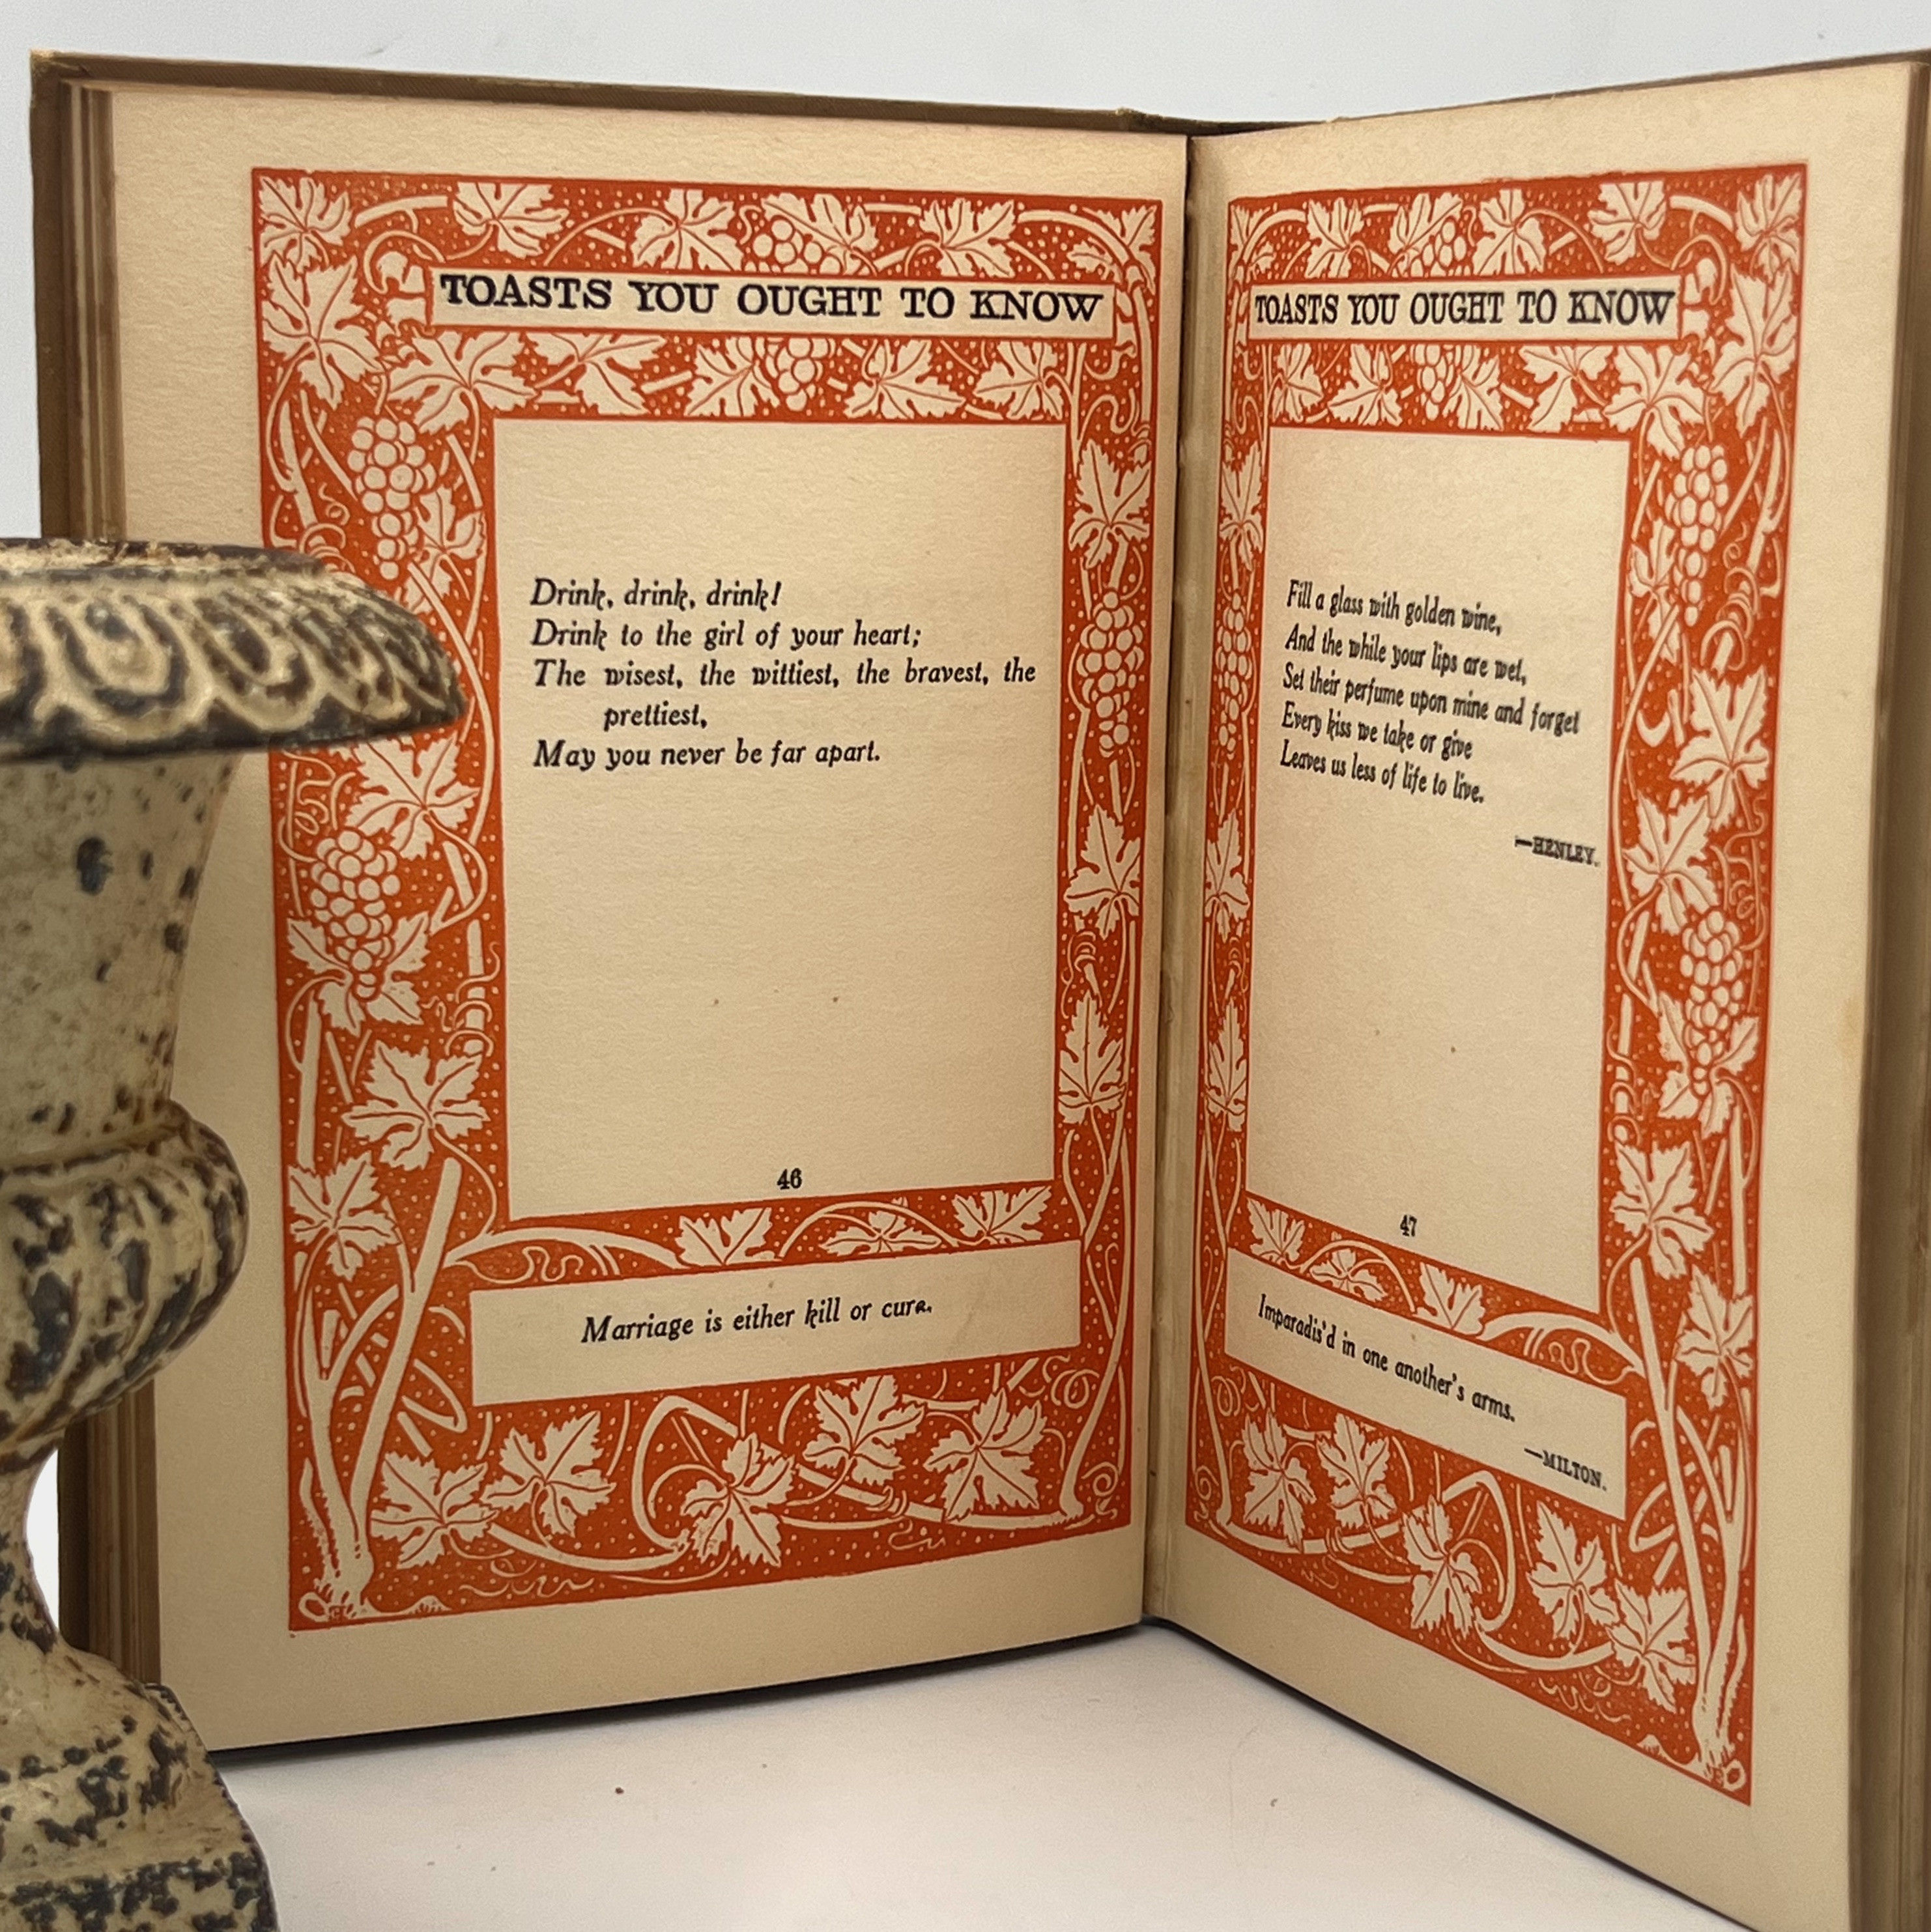 TOASTS YOU OUGHT TO KNOW
Drink, drink, drink!
Drink to the girl of your heart;
The wisest, the wittiest, the bravest, the
prettiest,
May you never be far apart.
46
Marriage is either kill or cure.
TOASTS YOU OUGHT TO KNOW
Fill a glass with golden wine,
And the while your lips are wet,
Set their perfume upon mine and forget
Every kiss we take or give
Leaves us less of life to live.
—HENLEY.
47
Imparadis'd in one another's arms.
—MILTON.